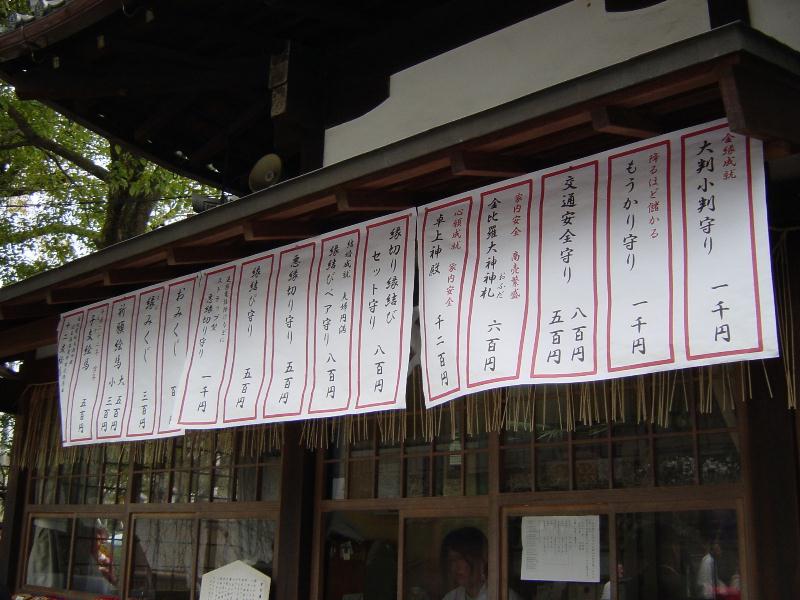 金縁成就
大判小判守り
一千円
降るほど儲かる
もうかり守り
一千円
交通安全守り
八百円
五百円
家内安全 商売繁盛
金比羅大神神札
おふだ
六百円
心願成就 家内安全
卓上神殿
千二百円
縁切り縁結び
セット守り
八百円
結婚成就 夫婦円満
縁結びペア守り
八百円
悪縁切り守り
五百円
縁結び守り
五百円
ストラップ型
悪縁切り守り
一千円
おみくじ
百
縁みくじ
三百円
祈願絵馬
大 五百円
小 三百円
干支絵馬
五百円
十二支